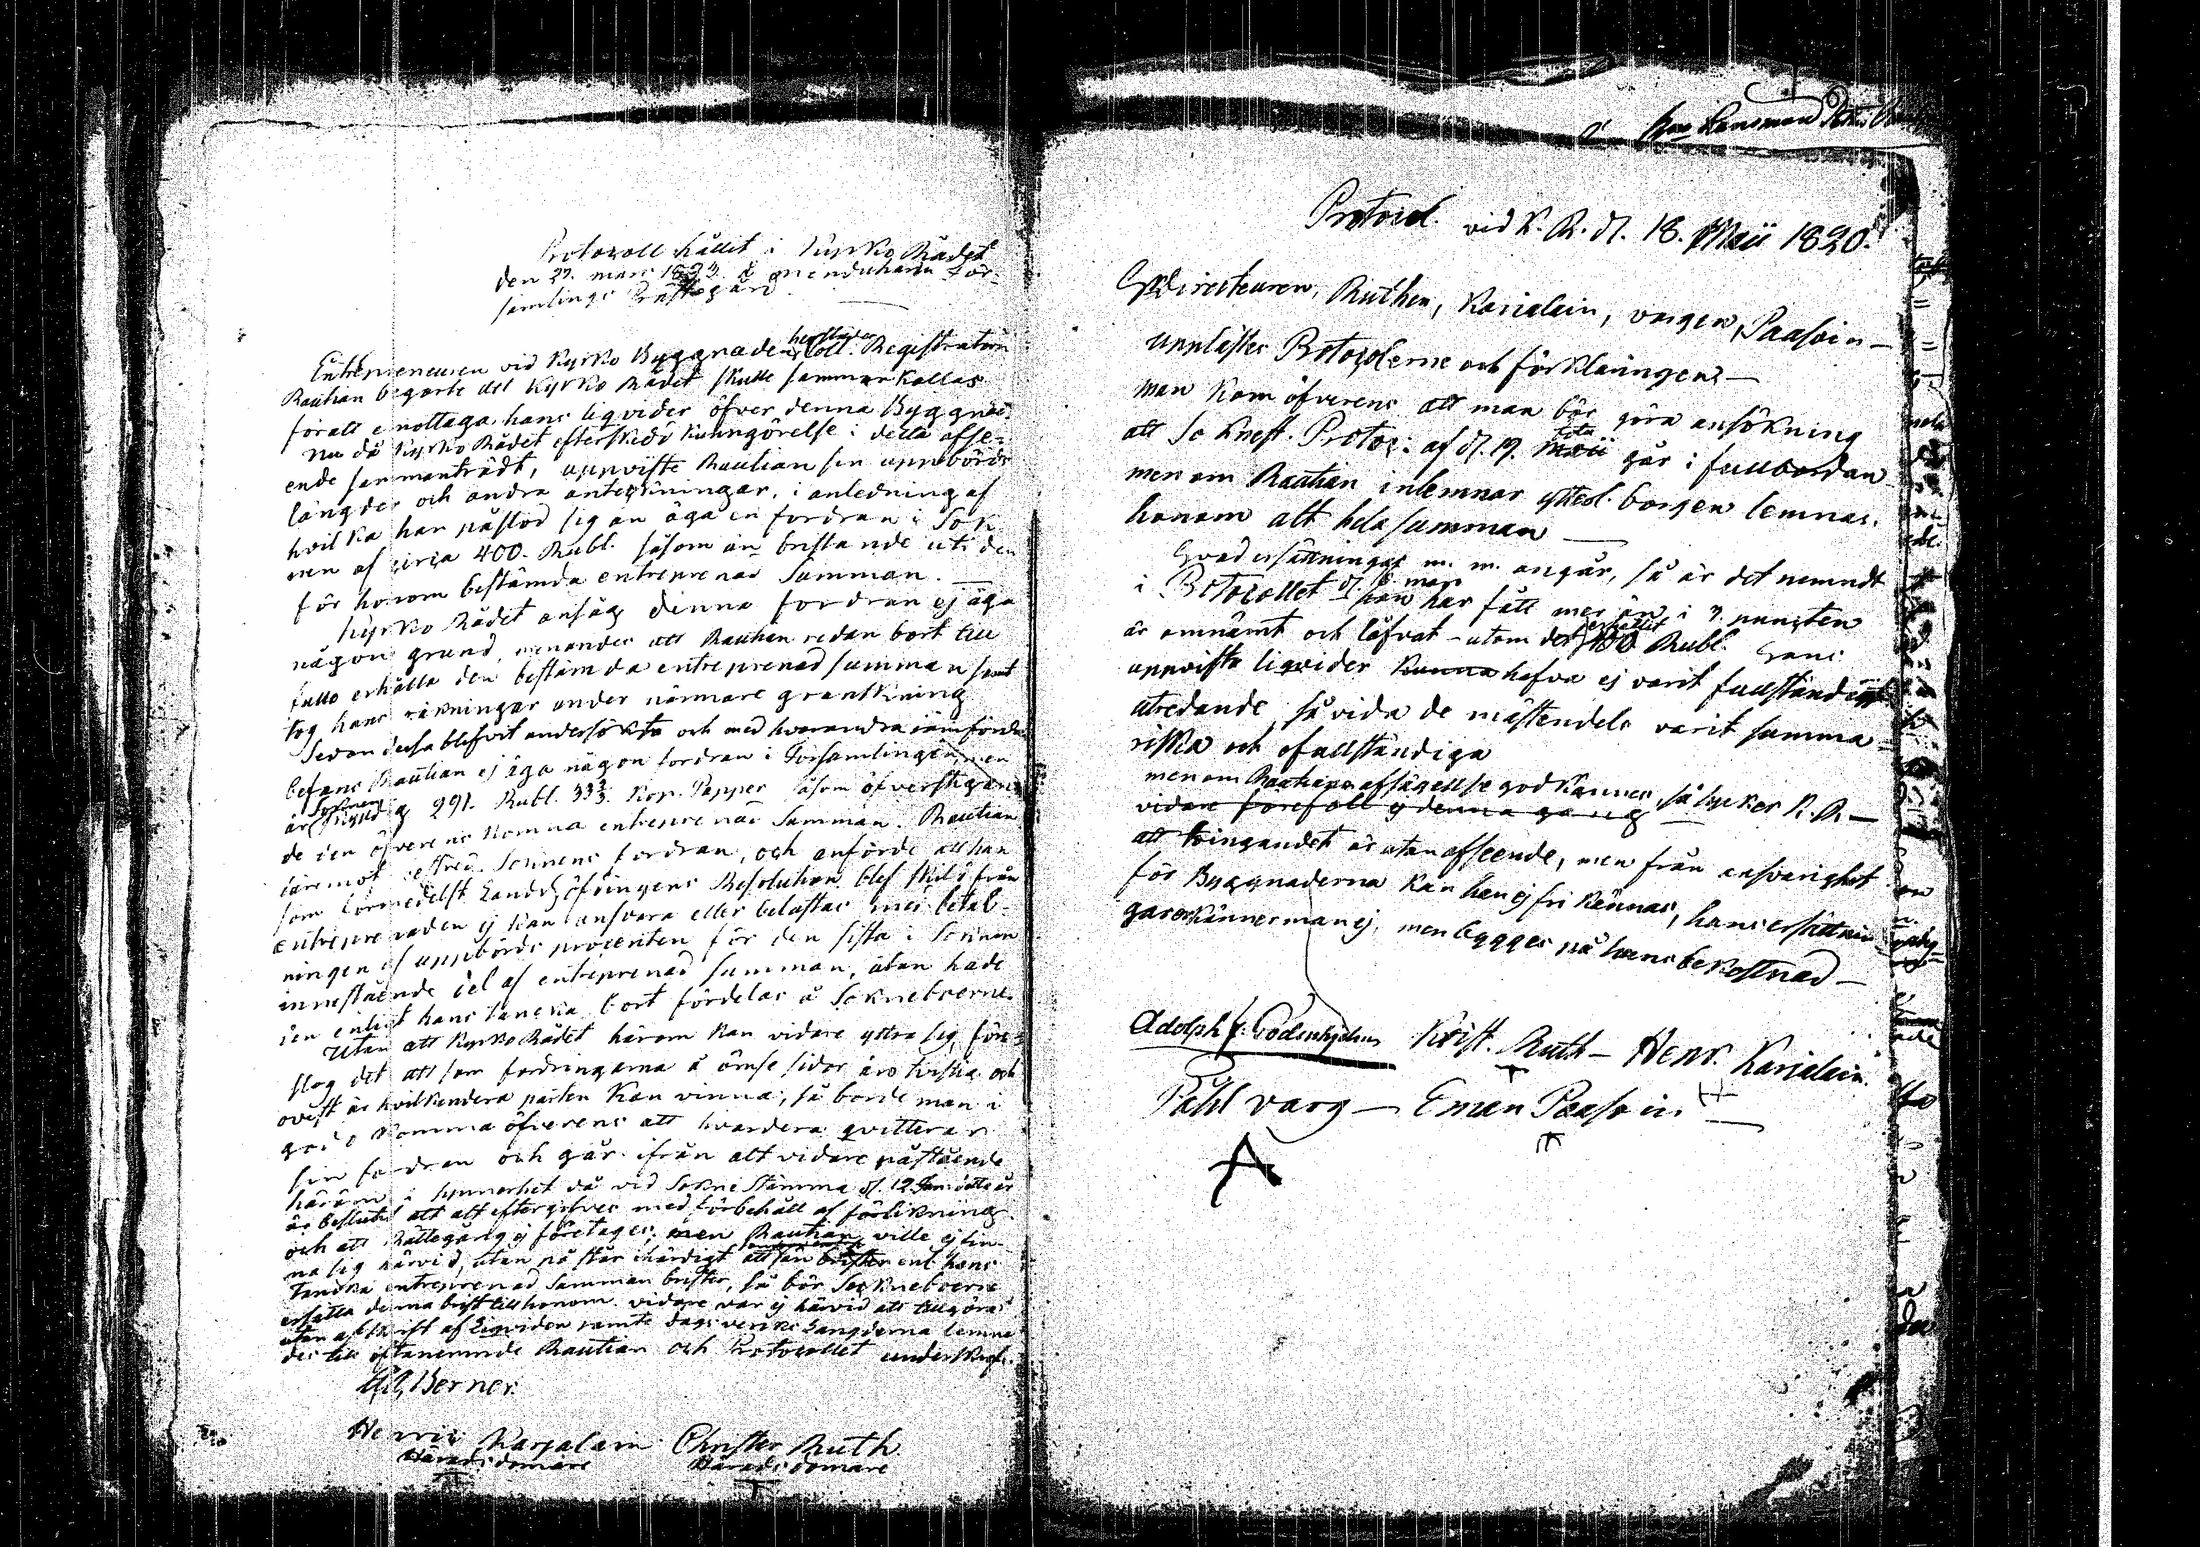 Protocoll hållit i Kyrko Rådet
den 27. mars 1823. å Menduharju För-
samlings Prästegård.
Entrepreneuren vid Kyrko Byggnaden Coll. Registratorn
Rautian begärte att Kyrko Rådet skulle samman kallas
för att emottaga hans liqvider öfver denna Byggnad.
Nu då Kyrko Rådet efterskedd kunngörelse i detta afse-
ende sammanträdt, uppviste Rautian sin uppbörds
längder och andra anteckningar, i anledning af
hvilka han påstod sig än äga en fordran i Sok-
nen af circa 400. Rubl. såsom än bristande uti den
för honom bestämda entreprenad Summan.
Kyrko Rådet ansåg denna fordran ej äga
någon grund, menandes att Rautian redan bort till
fullo erhålla den bestämda entreprenad summan samt
tog hans räkningar under närmare granskning
Sedan dessa blefvit undersökta och med hvarandra jämförda
befans Rautian ej äga någon fordran i Församlingen, men
är Soknen 291. Rubl. 33⅓. Kop. Papper såsom öfverstigan-
de den öfverens komna entreprenad Summan. Rautian
däremot Soknens fordran, och anförde att han
som förmedelst Landshöfdingens Resolution blef skild från
entreprenaden ej kan ansvara eller belastas med betal-
ningen af uppbörds procenten för den sista i Soknen
innestående del af entreprenad summan, utan hade
den enligt hans tanka bort fördelas å Sokneboerne.
Utan att Kyrko Rådet härom kan vidare yttra sig, före-
slog det att som fordringarna å ömse sidor äro tvistiga och
ovist är hvilkendera parten kan vinna, så borde man i
godo komma öfverens att hvardera qvitterar
sin fordran och går ifrån alt vidare påstående
härom i synnerhet då vid Sokne Stämma d. 12 Jan. detta år
är beslutit att alt eftergifves med förbehåll af förlikning
och att Rättegång ej företages; men Rautian ville ej fin-
na sig härvid, utan påstår ihärdigt att än brister enl. hans
tanka entreprenad Summan brister, så bör Sokneboerne
ersätta denna brist till honom. vidare var ej härvid att tillgöra
utan afskrift af Liqviden jämte dagsverks Längderna lemna-
des till oftanemnde Rautian och Protocollet underskrefs.
Berner
Henric Karjalain Christer Ruth
Häradsdomare Häradsdomare
Protocol vid K. R. d. 18. Maii 1820.
Directeuren, Ruthen, Karjalain, vargen, Paasoin —
Upplästes Protocolerne och förklaringen —
man kom öfverens att man bör göra ansökning
att Soknest. Protoc. af d. 19. Maii går i fullbordan
men om Rautian inlemnar borgen lemnas
honom alt hela summan —
Hvad ersättningar m. m. angår, så är det nemndt
i Protocollet d. 6 mars han har fått mer än i 7. puncten
är omnämt och löfvat — utom det erhållit 100 Rubl. Hans
uppviste liqvider kunna hafva ej varit fullständigt
utredande, så vida de mästendels varit summa-
riska och ofullständiga
men om Rautians afsägelse godkännes, så tycker K. R. —
vidare förefoll ej denna gång
att tvingandet är utan afseende, men från ansvarighet
för Byggnaderna kan han ej fri kännas, hans ersättnin-
gar erkänner man ej, men bygges på hans bekostnad —
Adolph f. Godenhjelm Krist. Ruth — Henr. Karjalain.
Påhl varg — Eman Paasoin